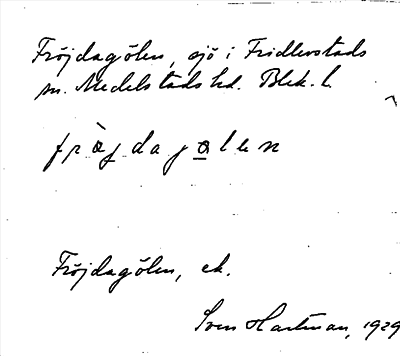 Fröjdagölen, sjö i Fridlevstads
sn. Medelstads hd. Blek. l.
frὰjdagα̲len
Fröjdagölen, ek.
Sven Hartman, 1929